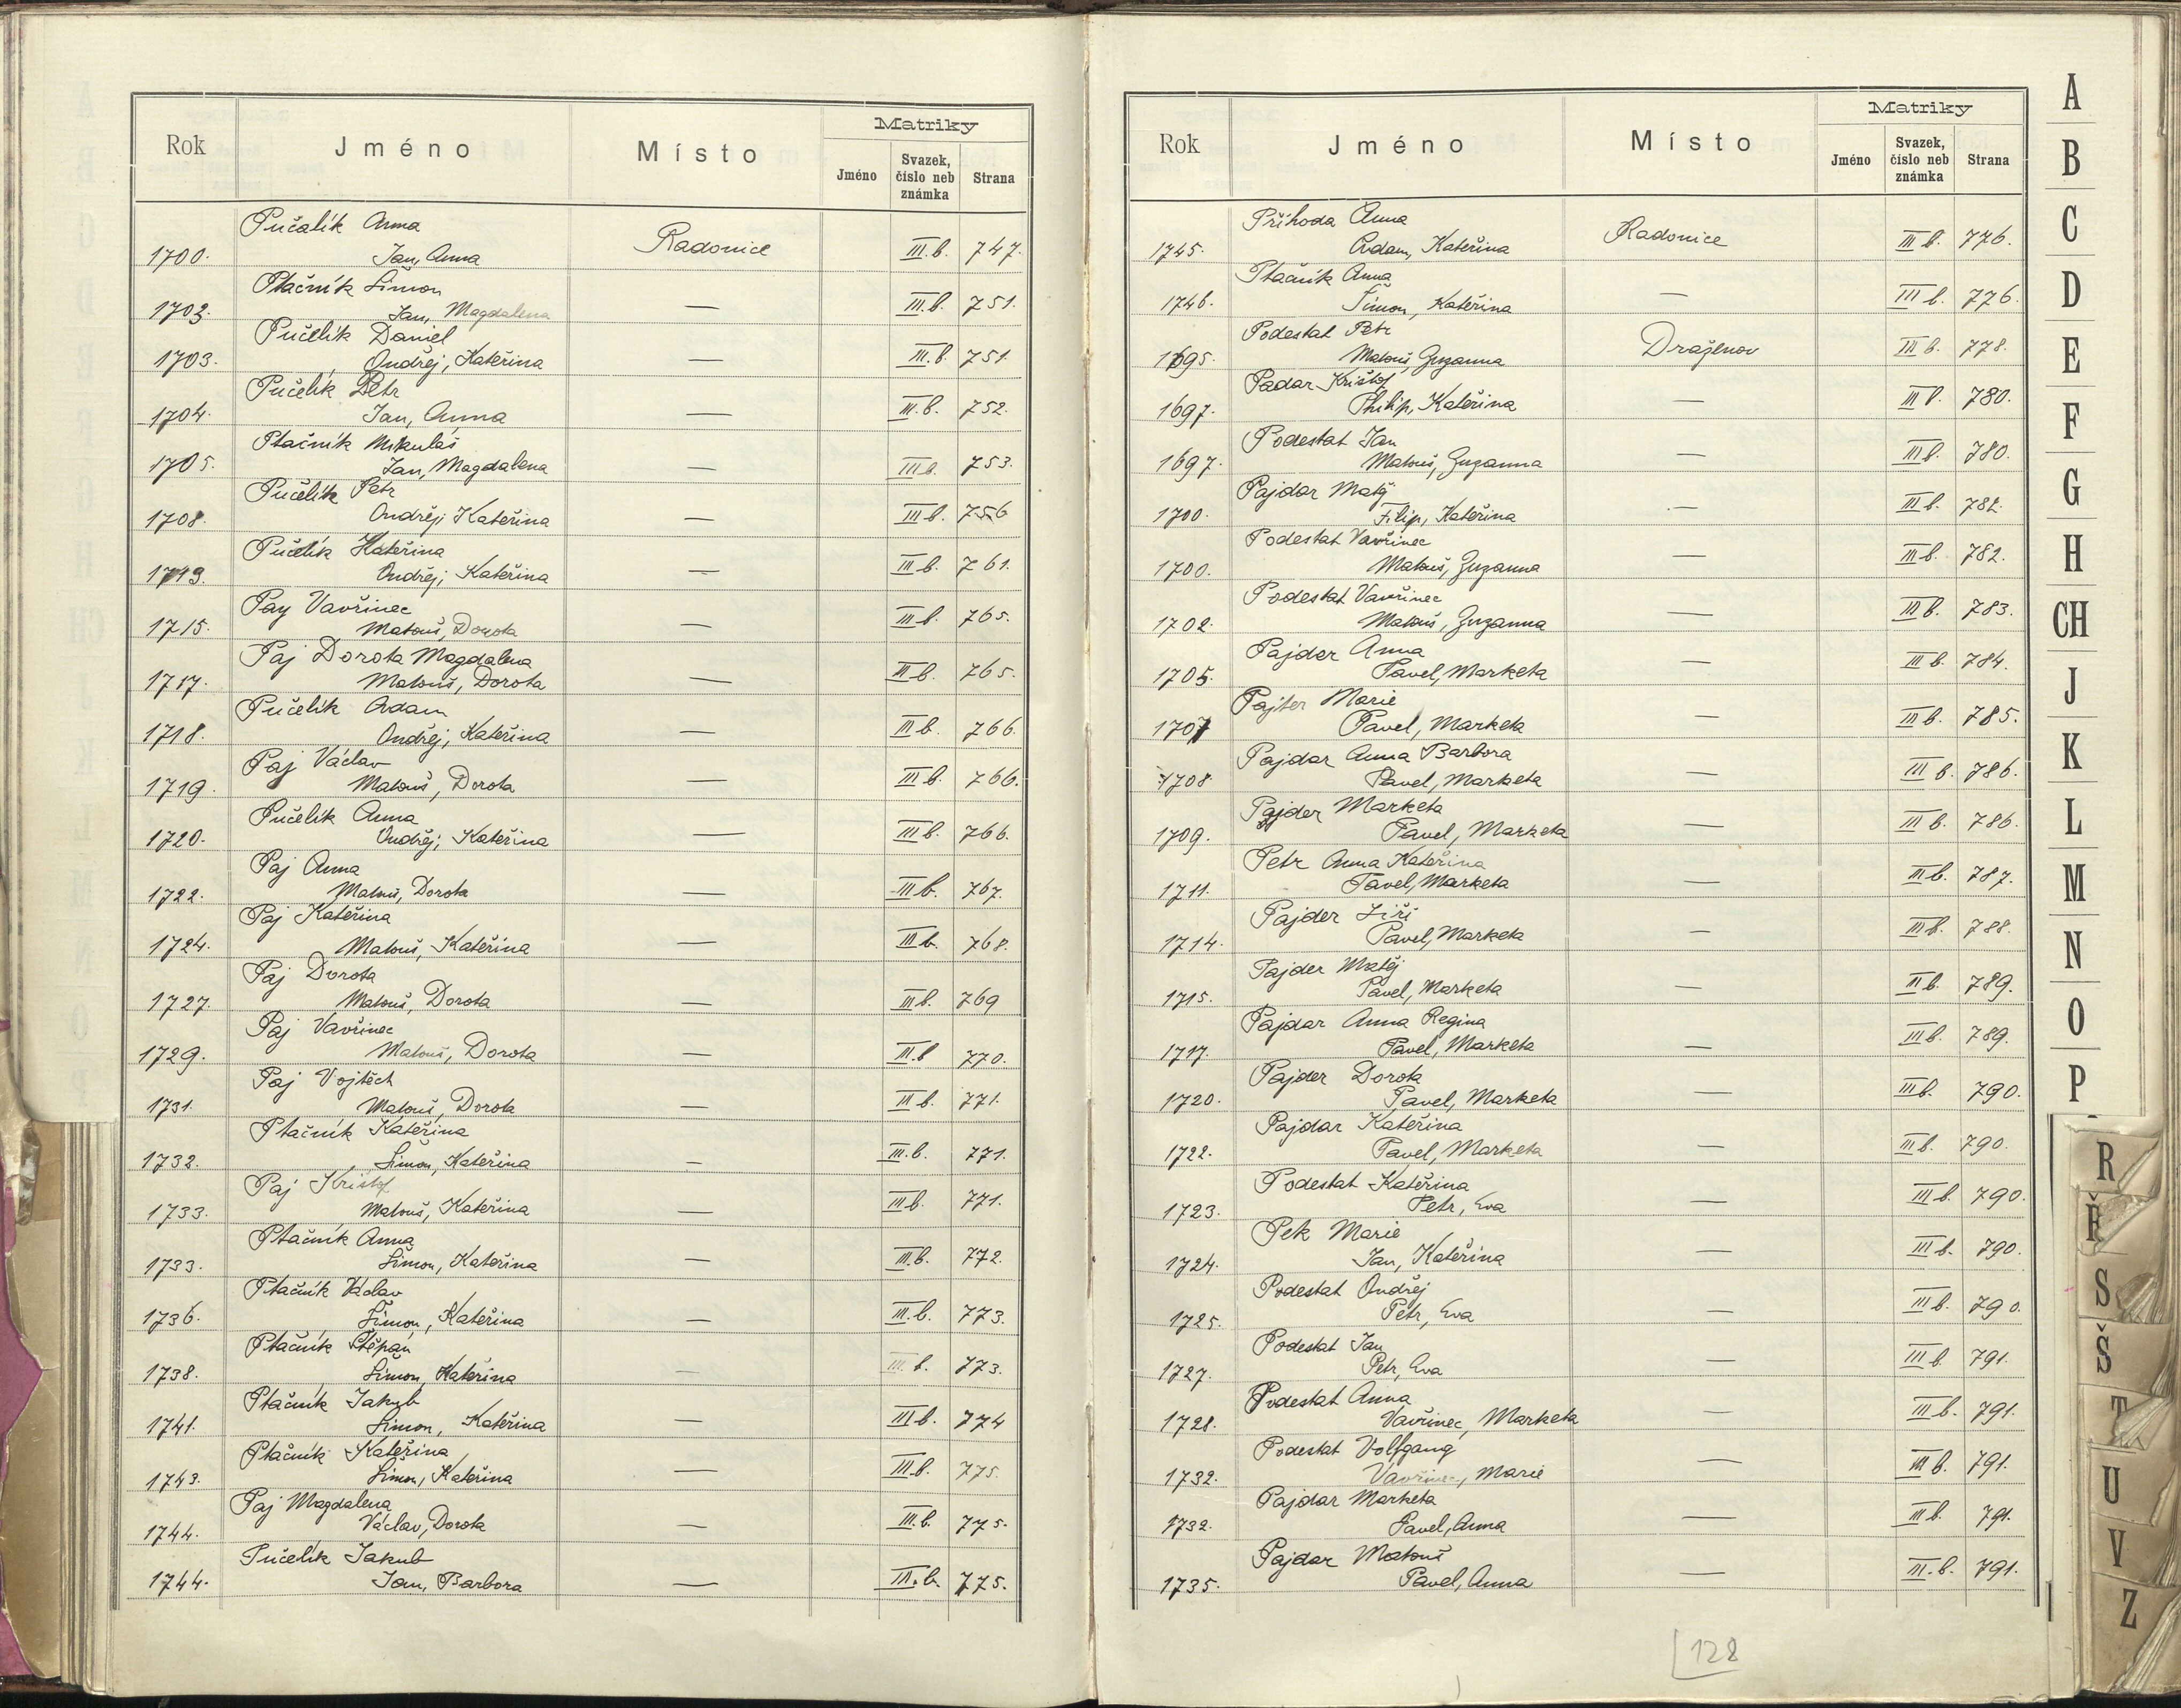 Matriky
Rok Jméno Místo Jméno Svazek, číslo neb známka Strana
Pučalík Anna
1700. Jan, Anna Radonice III.b. 747.
Ptáčník Šimon
1702. Jan, Magdalena — III.b. 751.
Pučelík Daniel
1703. Ondřej, Kateřina — III.b. 751.
Pučelík Petr
1704. Jan, Anna — III.b. 752.
Ptáčník Mikuláš
1705. Jan, Magdalena — III b. 753.
Pučelík Petr
1708. Ondřej, Kateřina — III b. 756
Pučelík Kateřina
Ondřej, Kateřina — III b. 761.
Pay Vavřinec
1715. Matouš, Dorota — III b. 765.
Paj Dorota Magdalena
1717. Matouš, Dorota — III b. 765.
Pučelík Adam
1718. Ondřej, Kateřina — III b. 766.
Paj Václav
1719. Matouš, Dorota — III b. 766.
Pučelík Anna
1720. Ondřej, Kateřina — III b. 766.
Paj Anna
1722. Matouš, Dorota — III b. 767.
Paj Kateřina
1724. Matouš, Kateřina — III b. 768.
Paj Dorota
1727. Matouš, Dorota — III b. 769
Paj Vavřinec
1729. Matouš, Dorota — III.b 770.
Paj Vojtěch
1731. Matouš, Dorota — III b. 771.
Ptáčník Kateřina
1732. Šimon, Kateřina — III.b. 771.
Paj Krištof
1733. Matouš, Kateřina — III b. 771.
Ptáčník Anna
1733. Šimon, Kateřina — III.b. 772.
Ptáčník Václav
1736. Šimon, Kateřina — III.b. 773.
Ptáčník Štěpán
1738. Šimon, Kateřina — III. b. 773.
Ptáčník Jakub
1741. Šimon, Kateřina — III b. 774
Ptáčník Kateřina
1743. Šimon, Kateřina — III b. 775.
Paj Magdalena
1744. Václav, Dorota — III.b. 775.
Pučelík Jakub
1744. Jan, Barbora — III.b. 775.
Matriky
Rok Jméno Místo Jméno Svazek, číslo neb známka Strana
Příhoda Anna
1745. Adam, Kateřina Radonice III b. 776.
Ptáčník Anna
1746. Šimon, Kateřina — III b. 776.
Podestat Petr
1695. Matouš, Zuzanna Draženov III b. 778.
Padar Krištof
1697. Philip, Kateřina — III b. 780.
Podestat Jan
1697. Matouš, Zuzanna — III b. 780.
Pajdar Matěj
1700. Filip, Kateřina — III b. 782.
Podestat Vavřinec
1700. Matouš, Zuzanna — III b. 782.
Podestat Vavřinec
1702. Matouš, Zuzanna — III b. 783.
Pajder Anna
1705. Pavel, Marketa — III b. 784.
Pajter Marie
1707 Pavel, Marketa — III b. 785.
Pajdar Anna Barbora
1708 Pavel, Marketa — III b. 786.
Pajder Marketa
1709. Pavel, Marketa — III b. 786.
Petr Anna Kateřina
1711. Pavel, Marketa — III b. 787.
Pajder Jiří
1714. Pavel, Marketa — III b. 788.
Pajder Matěj
1715. Pavel, Marketa — III b. 789.
Pajdar Anna Regina
1717. Pavel, Marketa — III b. 789.
Pajder Dorota
1720. Pavel, Marketa — III b. 790.
Pajdar Kateřina
1722. Pavel, Marketa — III b. 790.
Podestat Kateřina
1723. Petr, Eva — III b. 790.
Pek Marie
1724. Jan, Kateřina — III b. 790.
Podestat Ondřej
1725. Petr, Eva — III b. 790.
Podestat Jan
1727. Petr, Eva — III b 791.
Podestat Anna
1728. Vavřinec, Marketa — III b. 791.
Podestat Volfgang
1732. Vavřinec, Marie — III b. 791.
Pajdar Marketa
1732. Pavel, Anna — III b. 791.
Pajdar Matouš
1735. Pavel, Anna — III.b. 791.
128
A
B
C
D
E
F
G
H
CH
J
K
L
M
N
O
P
R
Ř
S
Š
T
U
V
Z